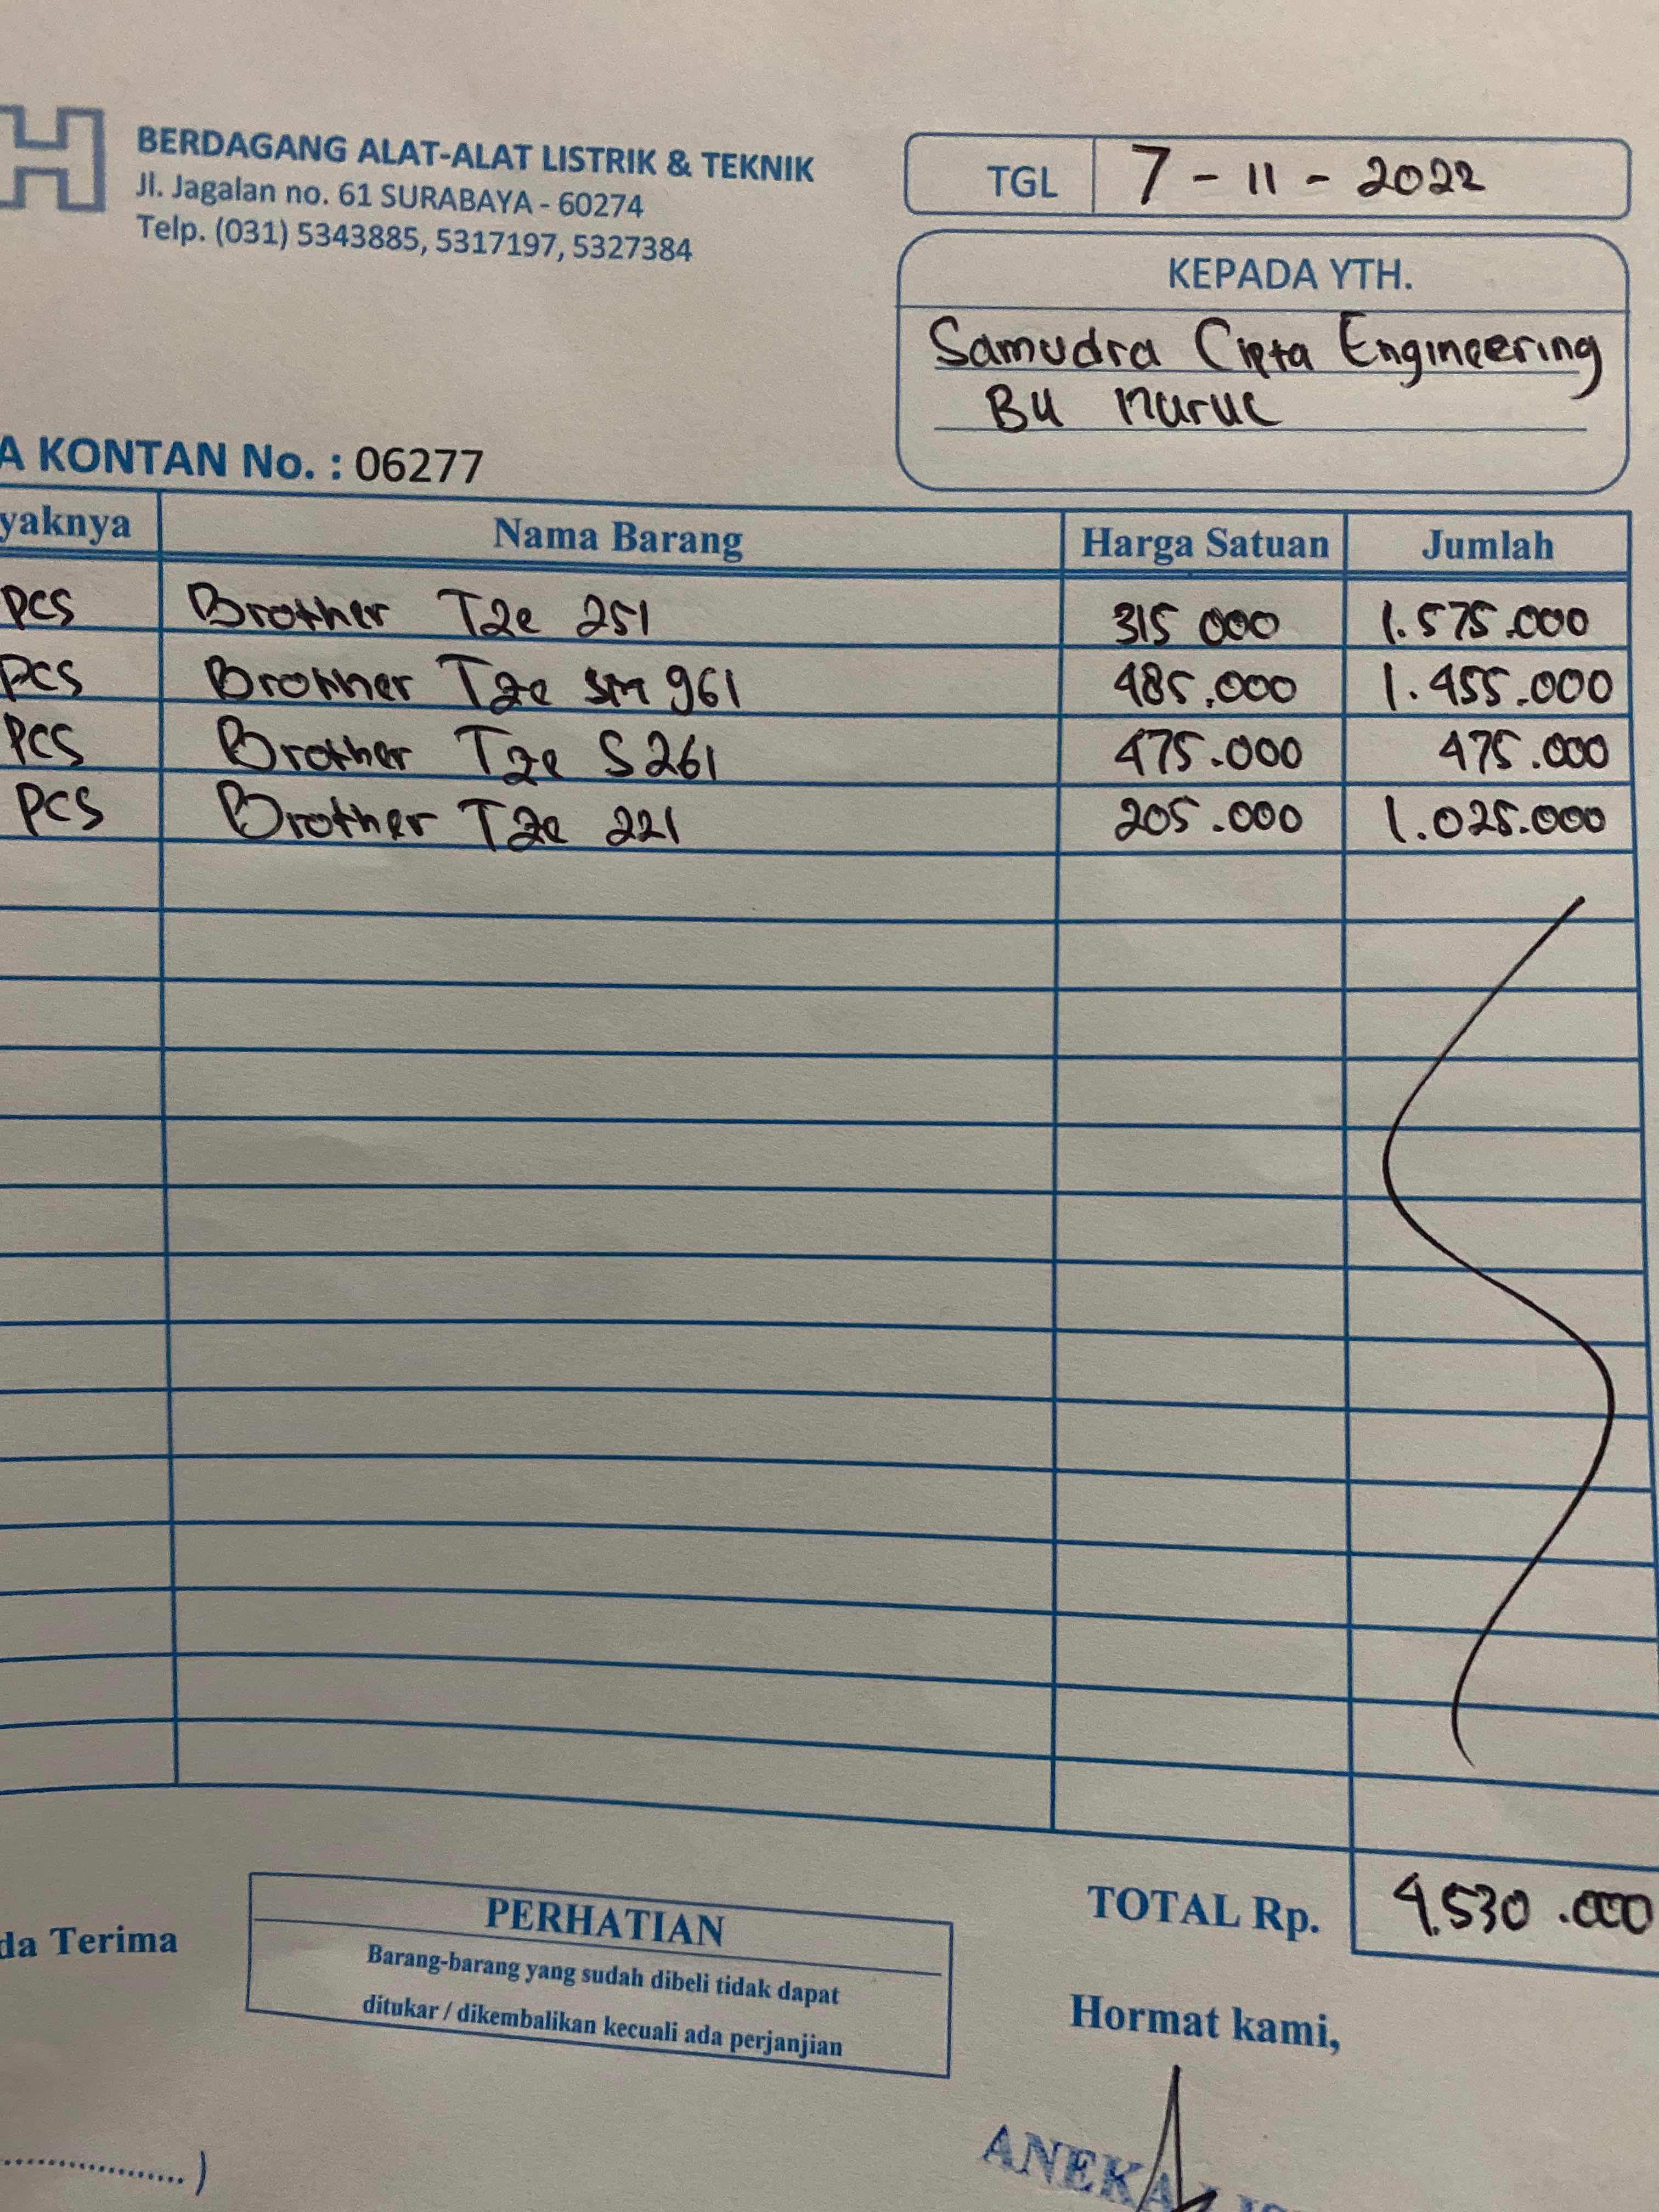 H
BERDAGANG ALAT-ALAT LISTRIK & TEKNIK
Jl. Jagalan no. 61 SURABAYA - 60274
Telp. (031) 5343885, 5317197, 5327384
TGL 7 - 11 - 2022
KEPADA YTH.
Samudra Cipta Engineering
Bu Nurul
A KONTAN No. : 06277
yaknya Nama Barang Harga Satuan Jumlah
PCS Brother Tze 251 315 000 1.575.000
PCS Brother Tze SM 961 485.000 1.455.000
PCS Brother Tze S261 475.000 475.000
PCS Brother Tze 221 205.000 1.025.000
TOTAL Rp. 4.530.000
da Terima
PERHATIAN
Barang-barang yang sudah dibeli tidak dapat
ditukar / dikembalikan kecuali ada perjanjian
Hormat kami,
ANEKA
..................)